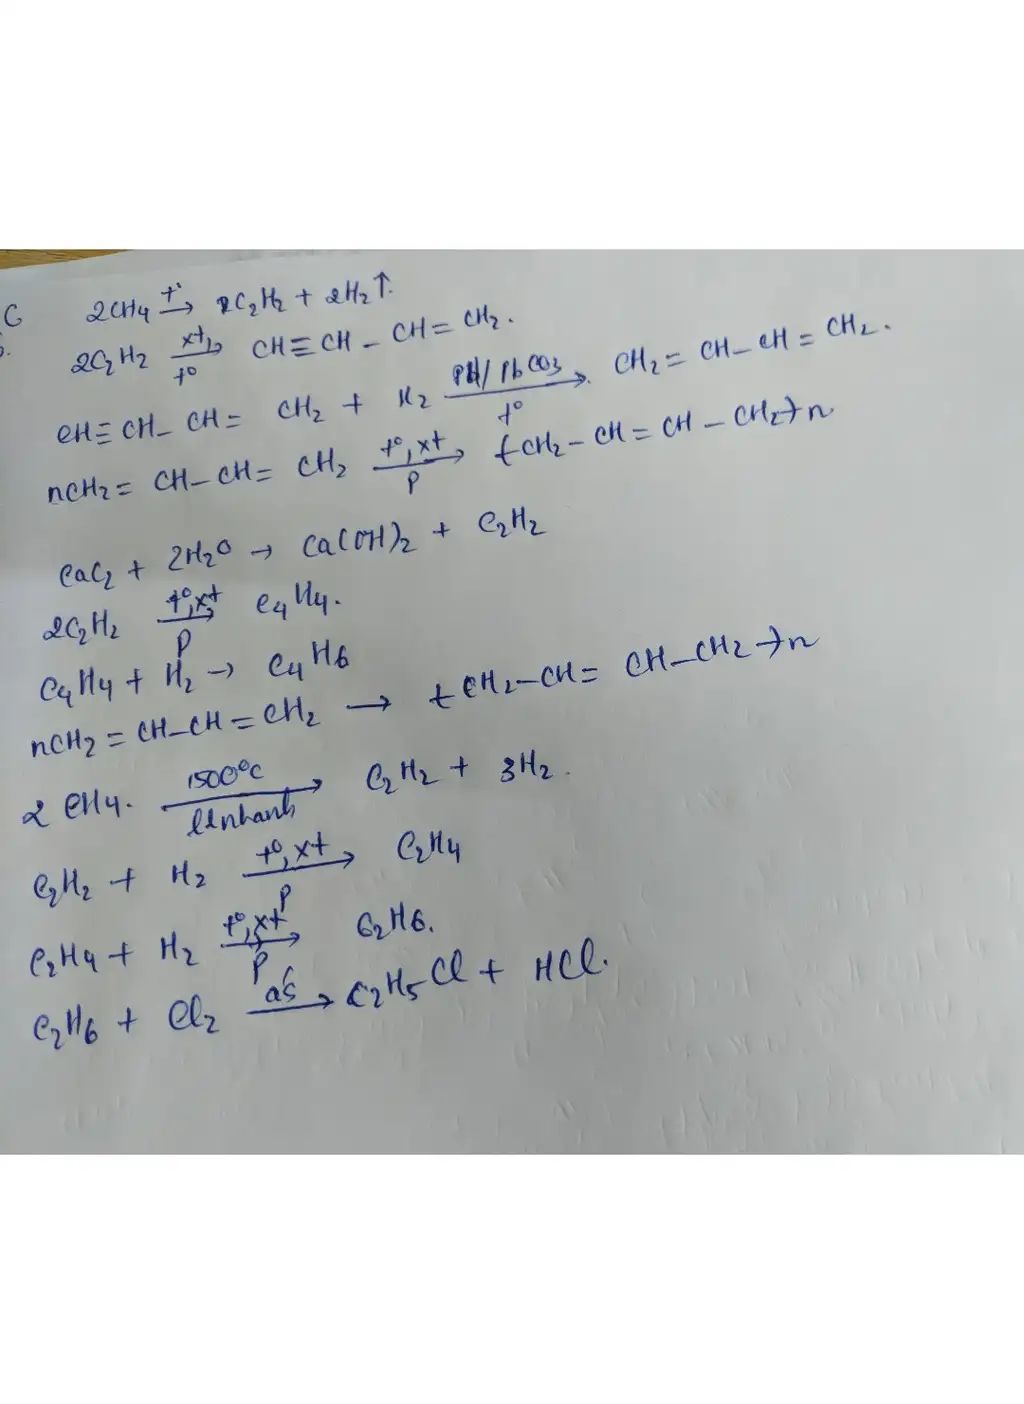 C 2CH4 t° → 2C2H2 + 2H2↑.
2C2H2 xt, t° → CH≡CH - CH=CH2.
CH≡CH- CH= CH2 + H2 Pd/PbCO3 t° → CH2=CH-CH=CH2.
nCH2=CH-CH=CH2 t°,xt P → (CH2-CH=CH-CH2)n
CaC2 + 2H2O → Ca(OH)2 + C2H2
2C2H2 t°,xt P → C4H4.
C4H4 + H2 → C4H6
nCH2=CH-CH=CH2 → (CH2-CH=CH-CH2)n
2CH4. 1500°C llnhanh → C2H2 + 3H2.
C2H2 + H2 t°,xt P → C2H4
C2H4 + H2 t°,xt P → C2H6.
C2H6 + Cl2 ás → C2H5Cl + HCl.